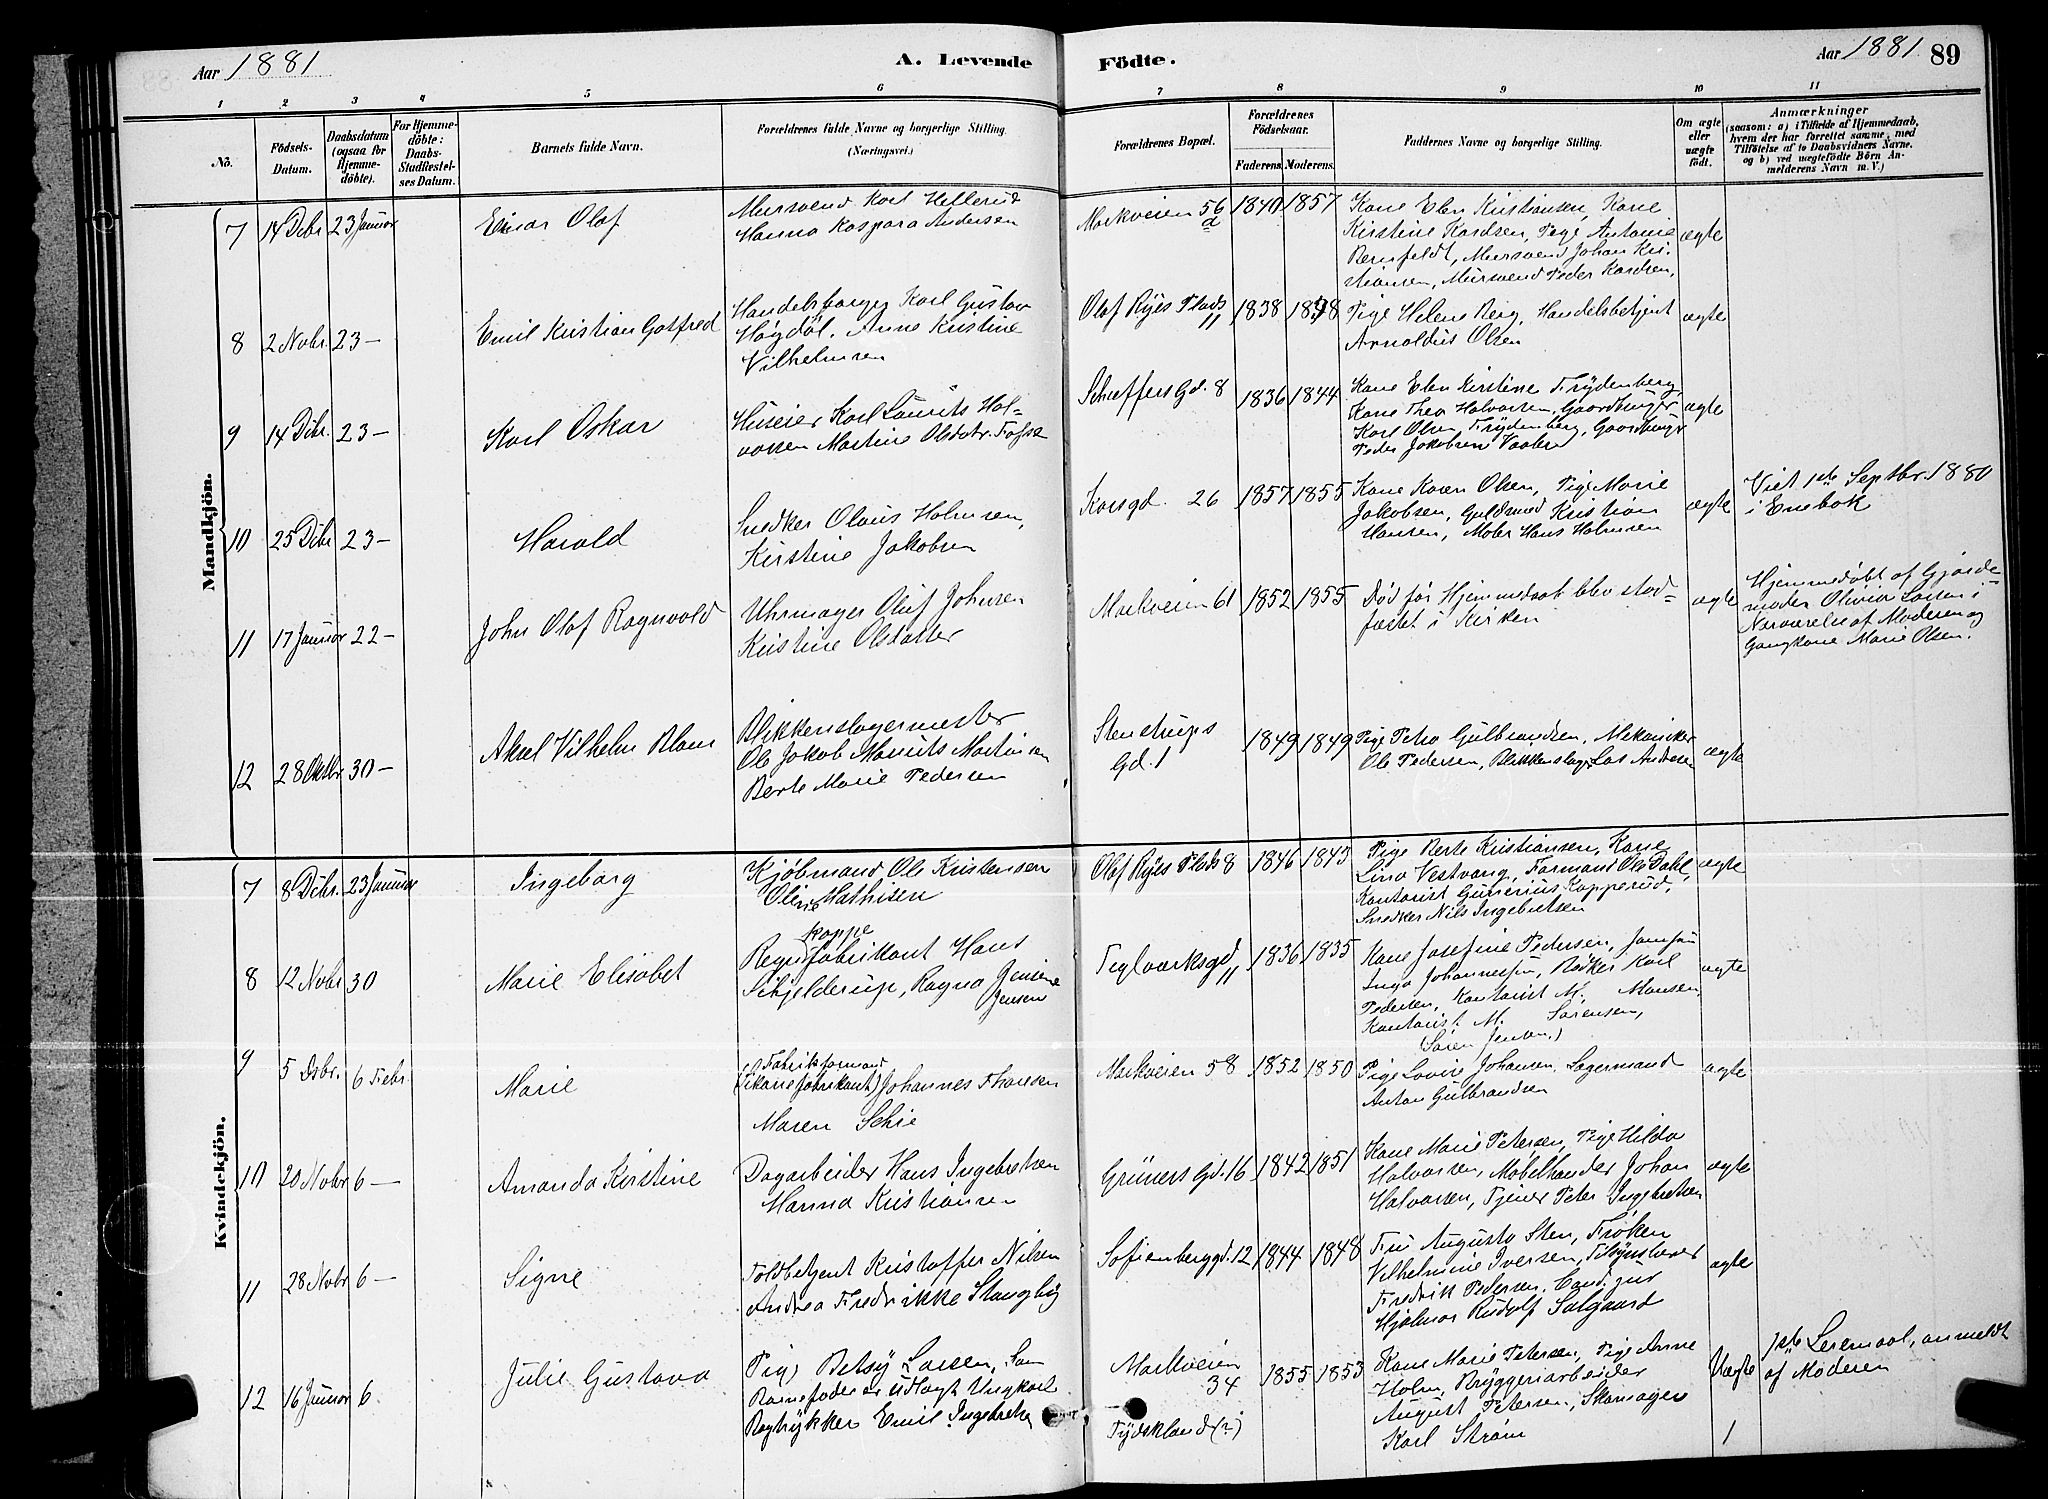 Aar 1881
A. Levende
Födte.
Aar 1881. 89
1 2 3 4 5 6 7 8 9 10 11
No.
Födsels-
Datum.
Daabsdatum
(ogsaa for
Hjemme-
döbte).
For Hjemme-
döbte:
Daabs-
Stadfæstel-
ses Datum.
Barnets fulde Navn.
Forældrenes fulde Navne og borgerlige Stilling.
(Næringsvei.)
Forældrenes Bopæl.
Forældrenes
Födselsaar.
Faderens. Moderens.
Faddernes Navne og borgerlige Stilling.
Om ægte
eller
uægte
födt.
Anmærkninger
(saasom: a) i Tilfælde af Hjemmedaab,
hvem der har forrettet samme, med
Tilföielse af to Daabsvidners Navne.
og b) ved uægtefödte Börn An-
melderens Navn m. V.)
Mandkjön.
7 14 Dcbr. 23 Januar
Einar Olaf
Mursvend Karl Hellerud
Hanna Kaspara Andersen
Markveien 56
d
1840 1857
Kone Elen Kristiansen, Kone
Kirstine Kardsen, Pige Antonie
Bernfeldt, Mursvend Johan Kri-
stiansen, Mursvend Peder Kardsen,
ægte
8 2 Nobr. 23 —
Emil Kristian Gotfred
Handelsborger Karl Gustav
Høgdøl. Anne Kristine
Vilhelmsen
Olaf Ryes Plads
11
1838 1848
Pige Helene Berg, Handelsbetjent
Arnoldus Olsen
ægte
9 14 Dcbr. 23 —
Karl Oskar
Huseier Karl Laurits Hal=
vorsen Martine Olsdtr.
Schæffers Gd. 8
1836 1844
Kone Elen Kirstine Frydenberg,
Kone Thea Halvorsen, Gaardbruger
Karl Olsen Frydenberg, Gaardbruger
Peder Jakobsen Vaaler
ægte
10 25 Dcbr 23 —
Harald
Snedker Olaus Holmsen,
Kirstine Jakobsen
Korsgd. 26
1857 1855
Kone Karen Olsen, Pige Marie
Jakobsen, Guldsmed Kristian
Hansen, Maler Hans Holmsen
ægte
Viet 1ste Septbr. 1880
i Enebak
11 17 Januar 22 —
John Olaf Ragnvald
Uhrmager Oluf Johnsen
Kristine Olsdatter
Markveien 61
1852 1855
Død før Hjemmedaab blev stad=
fæstet i Kirken
ægte
Hjemmedøbt af Gjorde-
moder Olivia Larsen i
Nærværelse af Moderen og
Gangkone Marie Olsen.
12 28 Oktbr 30 —
Aksel Vilhelm Blom
Blikkenslagermester
Ole Jakob Maurits Martinsen
Berte Marie Pedersen
Stenstrups
Gd. 1
1849 1849
Pige Petra Gulbrandsen, Mekaniker
Ole Pedersen, Blikkenslager Lars Andersen
ægte
Kvindekjön.
7 8 Dcbr. 23 Januar
Ingeborg
Kjøbmand Ole Kristensen
Oline Mathisen
Olaf Ryes Plads 8
1846 1843
Pige Berte Kristiansen, Kone
Lina Vestvang, Formand Ole Dahl,
Kontorist Gunerius Kopperud,
Snedker Nils Ingebretsen
ægte
8 12 Nobr 30
Marie Elisabet
kappe
Regnfabrikant Hans
Schjelderup, Ragna Jensine
Jensen
Teglverksgd
11
1836 1835
Kone Josefine Pedersen, Jomfru
Inga Johannesen, Bøkker Karl
Pedersen, Kontorist M. Monsen,
Kontorist M. Sørensen,
(Søren Jensen.)
ægte
9 5 Dcbr. 6 Febr.
Marie
Fabrikformand
Johannes Thoresen
Maren Schie
Markveien 58
1852 1850
Pige Lovise Johansen, Lagermand
Anton Gulbrandsen
ægte
10 20 Nobr 6 —
Amanda Kirstine
Dagarbeider Hans Ingebretsen
Hanna Kristiansen
Grüners Gd. 16
1842 1851
Kone Marie Petersen, Pige Hilda
Halvorsen, Møbelhandler Johan
Halvorsen, Tjener Peter Ingebretsen
ægte
11 28 Nobr 6 —
Signe
Toldbetjent Kristoffer Nilsen
Andrea Fredrikke Stangeby
Sofienberggd. 12
1844 1848
Fru Augusta Sten, Frøken
Vilhelmine Iversen,
Fredrik Pedersen, Cand. jur
Hjalmar Rudolf Salgaard
ægte
12 16 Januar 6.
Julie Gustava
Pige Betsy Larsen, Som
Barnefader er udlagt Ungkarl
Bogtrykker Emil Ingebretsen
Markveien
34
Tydskland (?)
1855 1853
Kone Marie Petersen, Pige Anne
Holm, Bryggeriarbeider
August Petersen, Skomager
Karl Strøm
Uægte
1
1ste Leiermaal, anmeldt
af Moderen